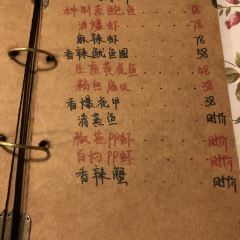 特制蒸鲍鱼 68
油爆虾 78
麻辣虾 78
香辣鱿鱼圈 58
生煎黄花鱼 48
粉丝扇贝 38
香爆花甲 38
清蒸鱼 时价
椒盐PP虾 时价
白灼PP虾 时价
香辣蟹 时价